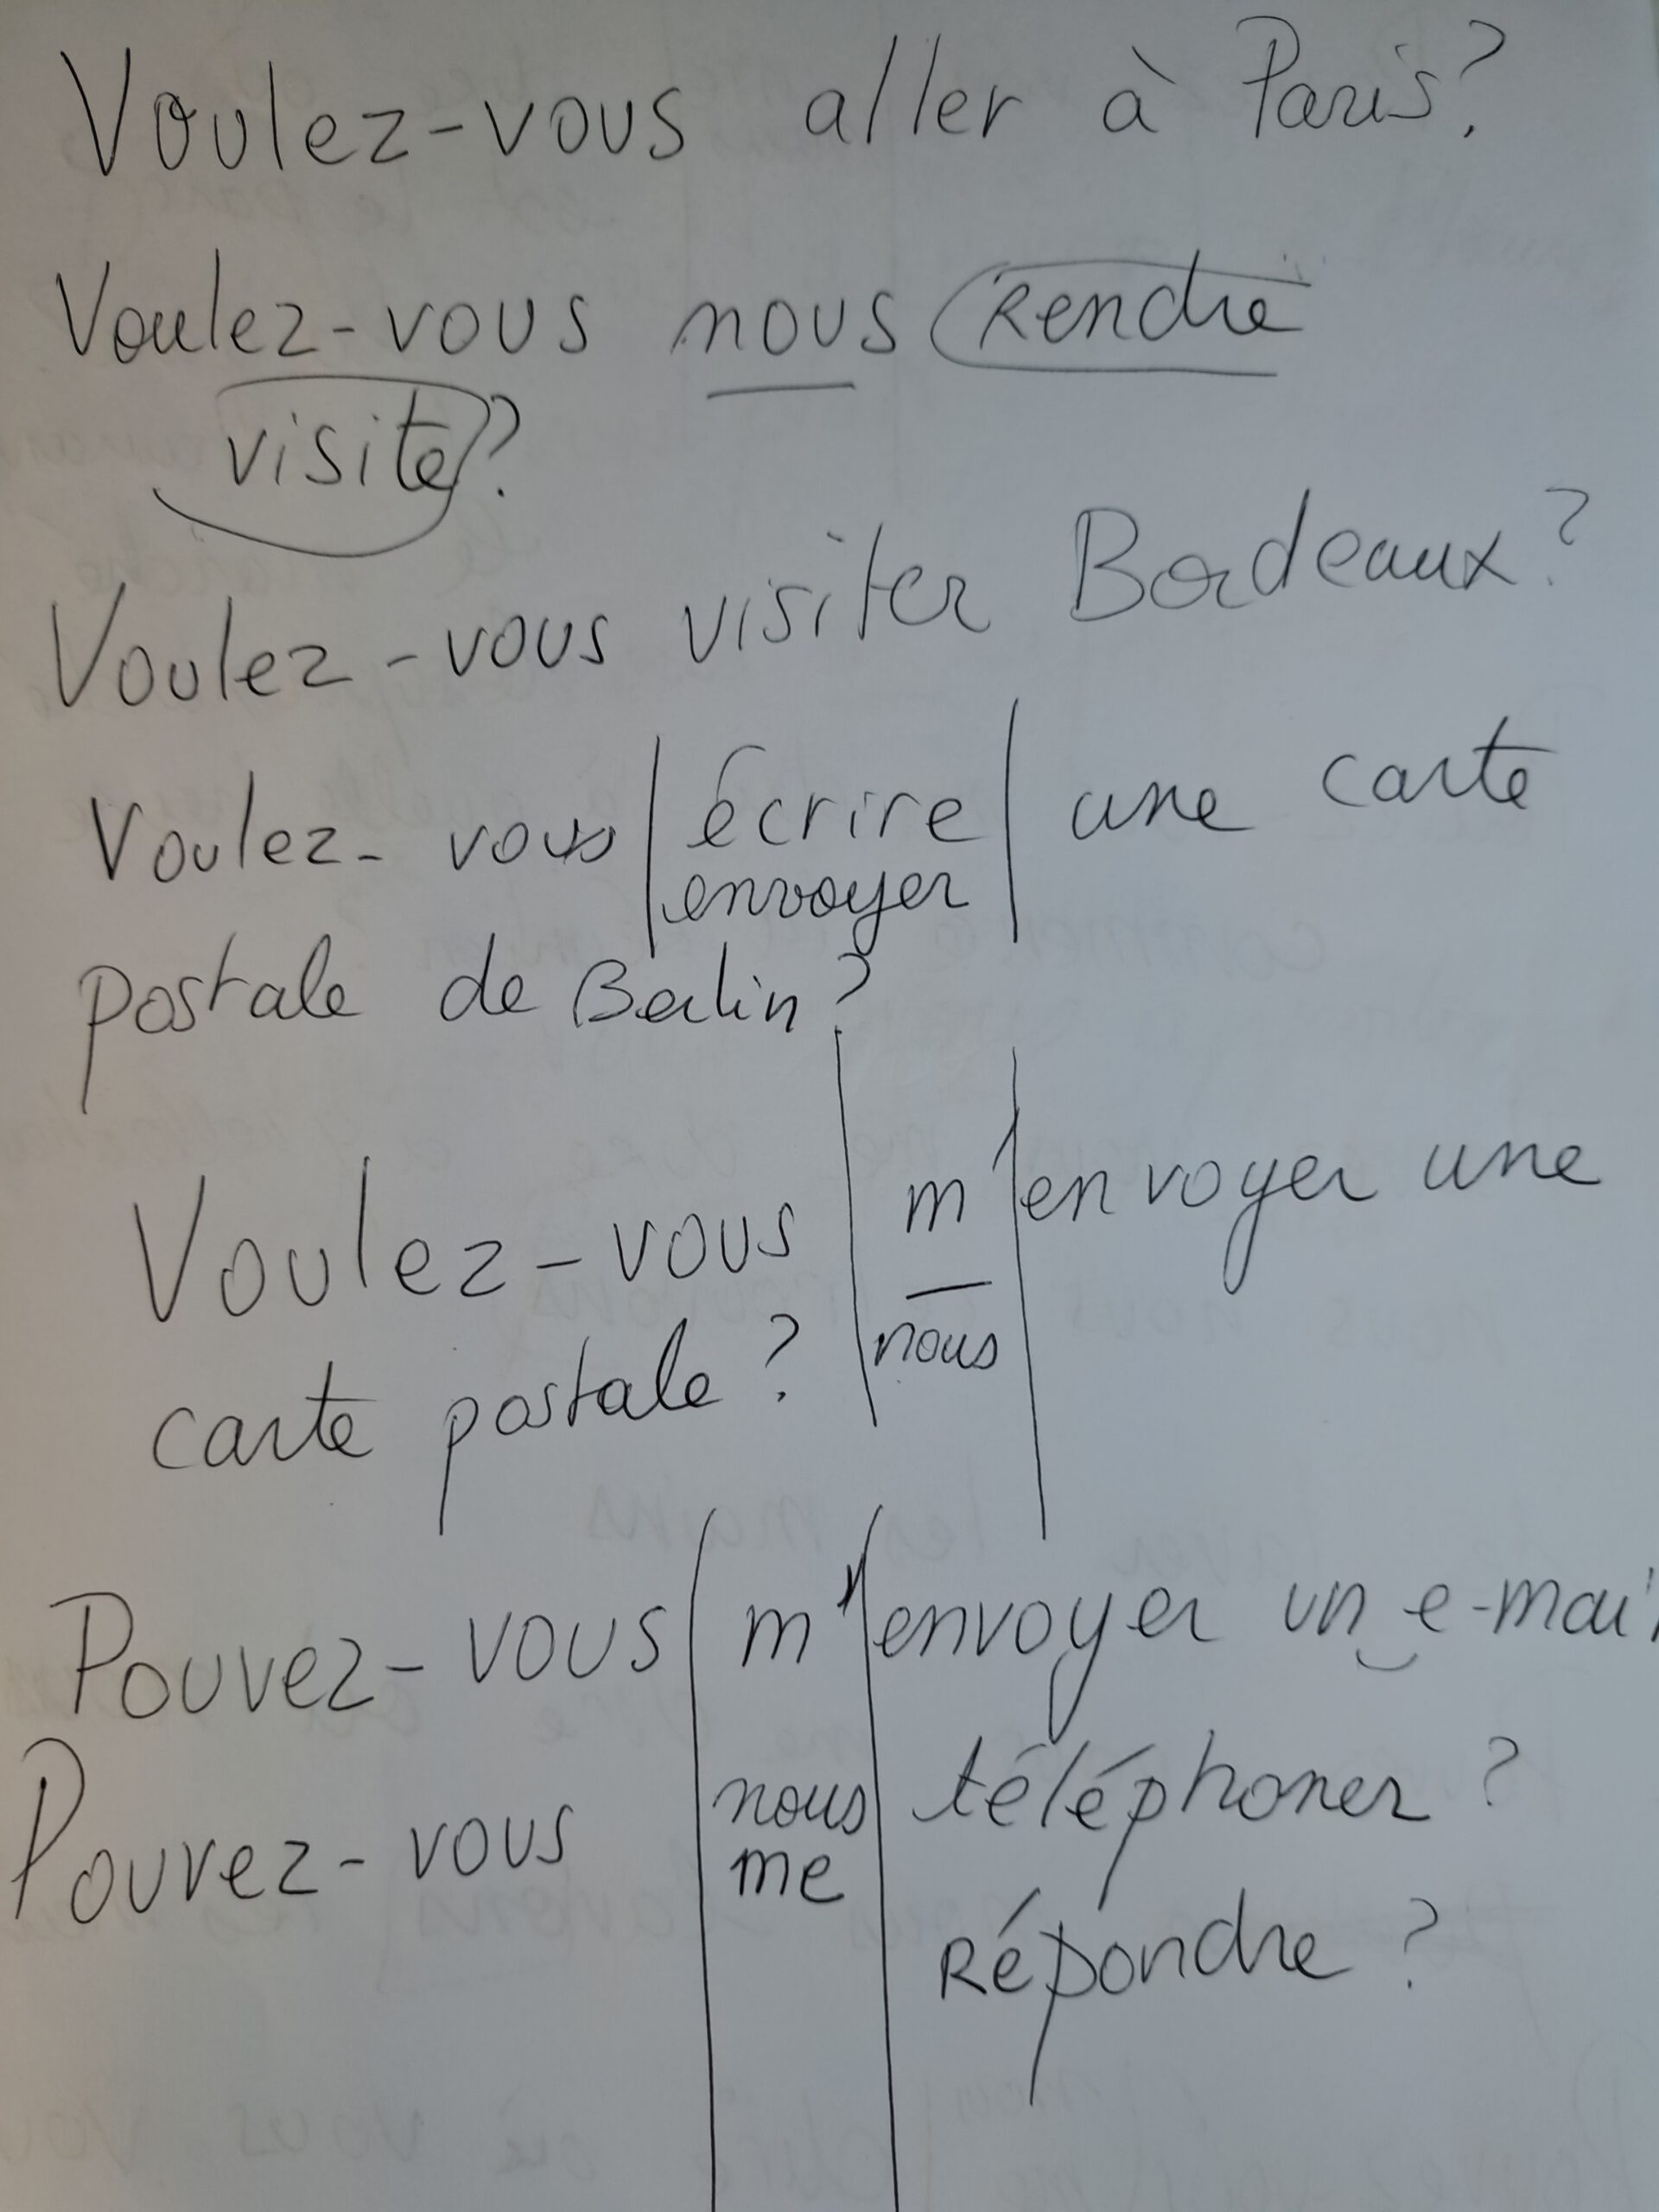 Voulez-vous aller à Paris?
Voulez-vous nous rendre
visite?
Voulez-vous visiter Bordeaux?
Voulez-vous écrire une carte
envoyer
postale de Berlin?
Voulez-vous m'envoyer une
nous
carte postale?
Pouvez-vous m'envoyer un e-mail
Pouvez-vous nous téléphoner?
me
Répondre?